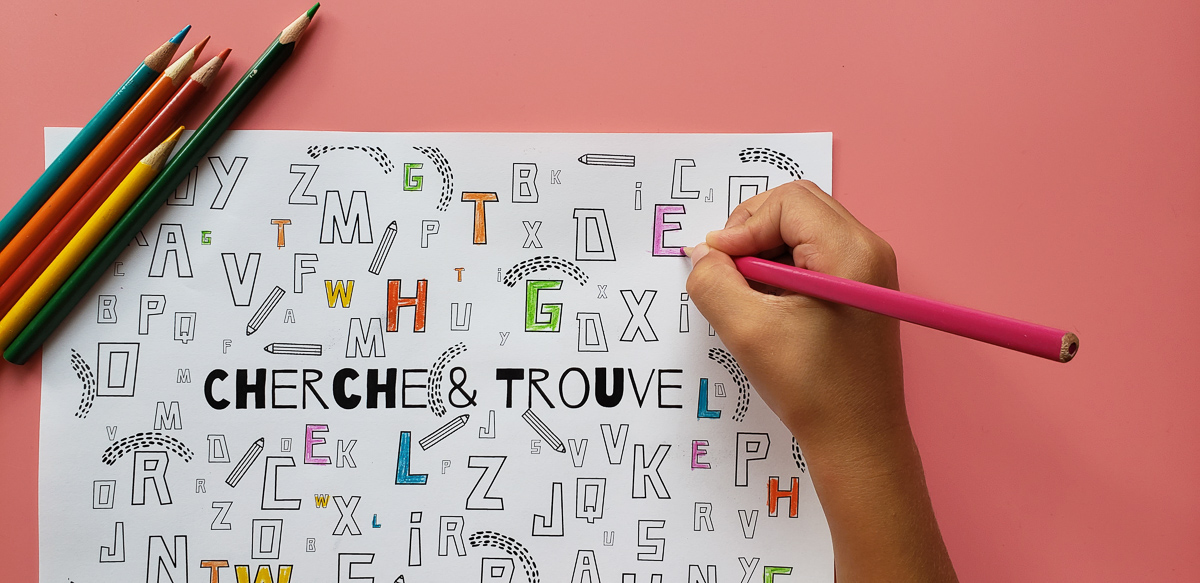 Y Z G B K i C J
T M P T X D E
A G V F W T i G X X i
B P Q A M H U Y D
O F M
CHERCHE & TROUVE L
M V D O E K L J V V E P
O R R C W X P Z J Q K H
J Z O B L i R U S R V
N T W A